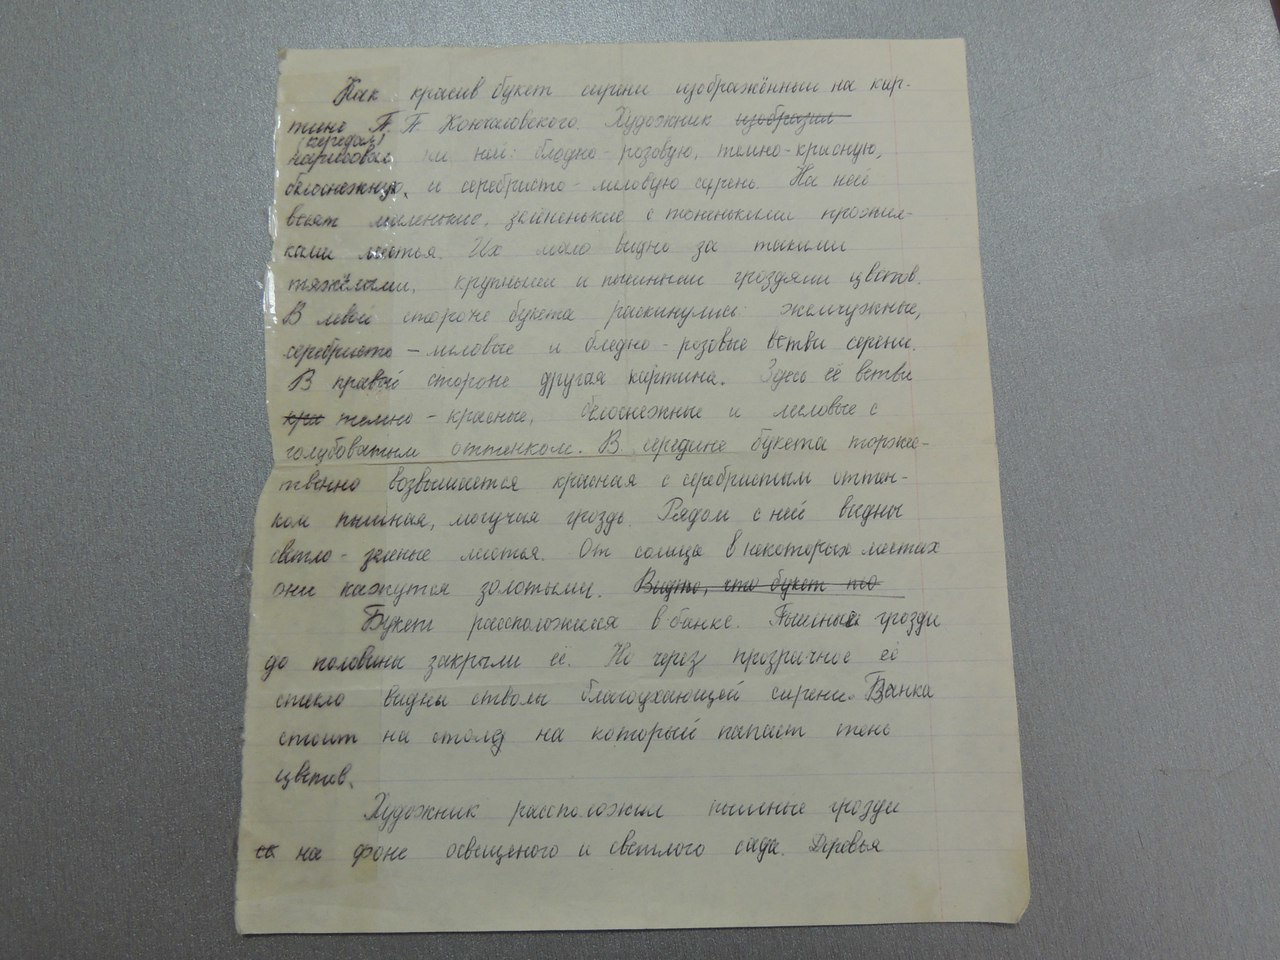 Как красив букет сирени изображённый на кар-
тине П. П. Кончаловского. Художник изобразил
(передал)
нарисовал на ней: бледно-розовую, темно-красную,
белоснежную, и серебристо-лиловую сирень. На ней
висят маленькие, зелененькие с тоненькими прожил-
ками листья. Их мало видно за такими
тяжёлыми, крупными и пышными гроздями цветов.
В левой стороне букета раскинулись: жемчужные,
серебристо-лиловые и бледно-розовые ветви серени.
В правой стороне другая картина. Здесь её ветви
кра темно-красные, белоснежные и лиловые с
голубоватым оттенком. В середине букета торже-
твенно возвышается красная с серебристым оттен-
ком пышная, могучая гроздь. Рядом с ней видны
светло-зеленые листья. От солнца в некоторых местах
они кажутся золотыми. Видно, что букет
Букет рассположился в банке. Пышные грозди
до половины закрыли её. Но через прозрачное её
стекло видны стволы благоухающей сирени. Банка
стоит на столе на который папает тень
цветов.
Художник рассположил пышные грозди
на фоне освещеного и светлого сада. Деревья